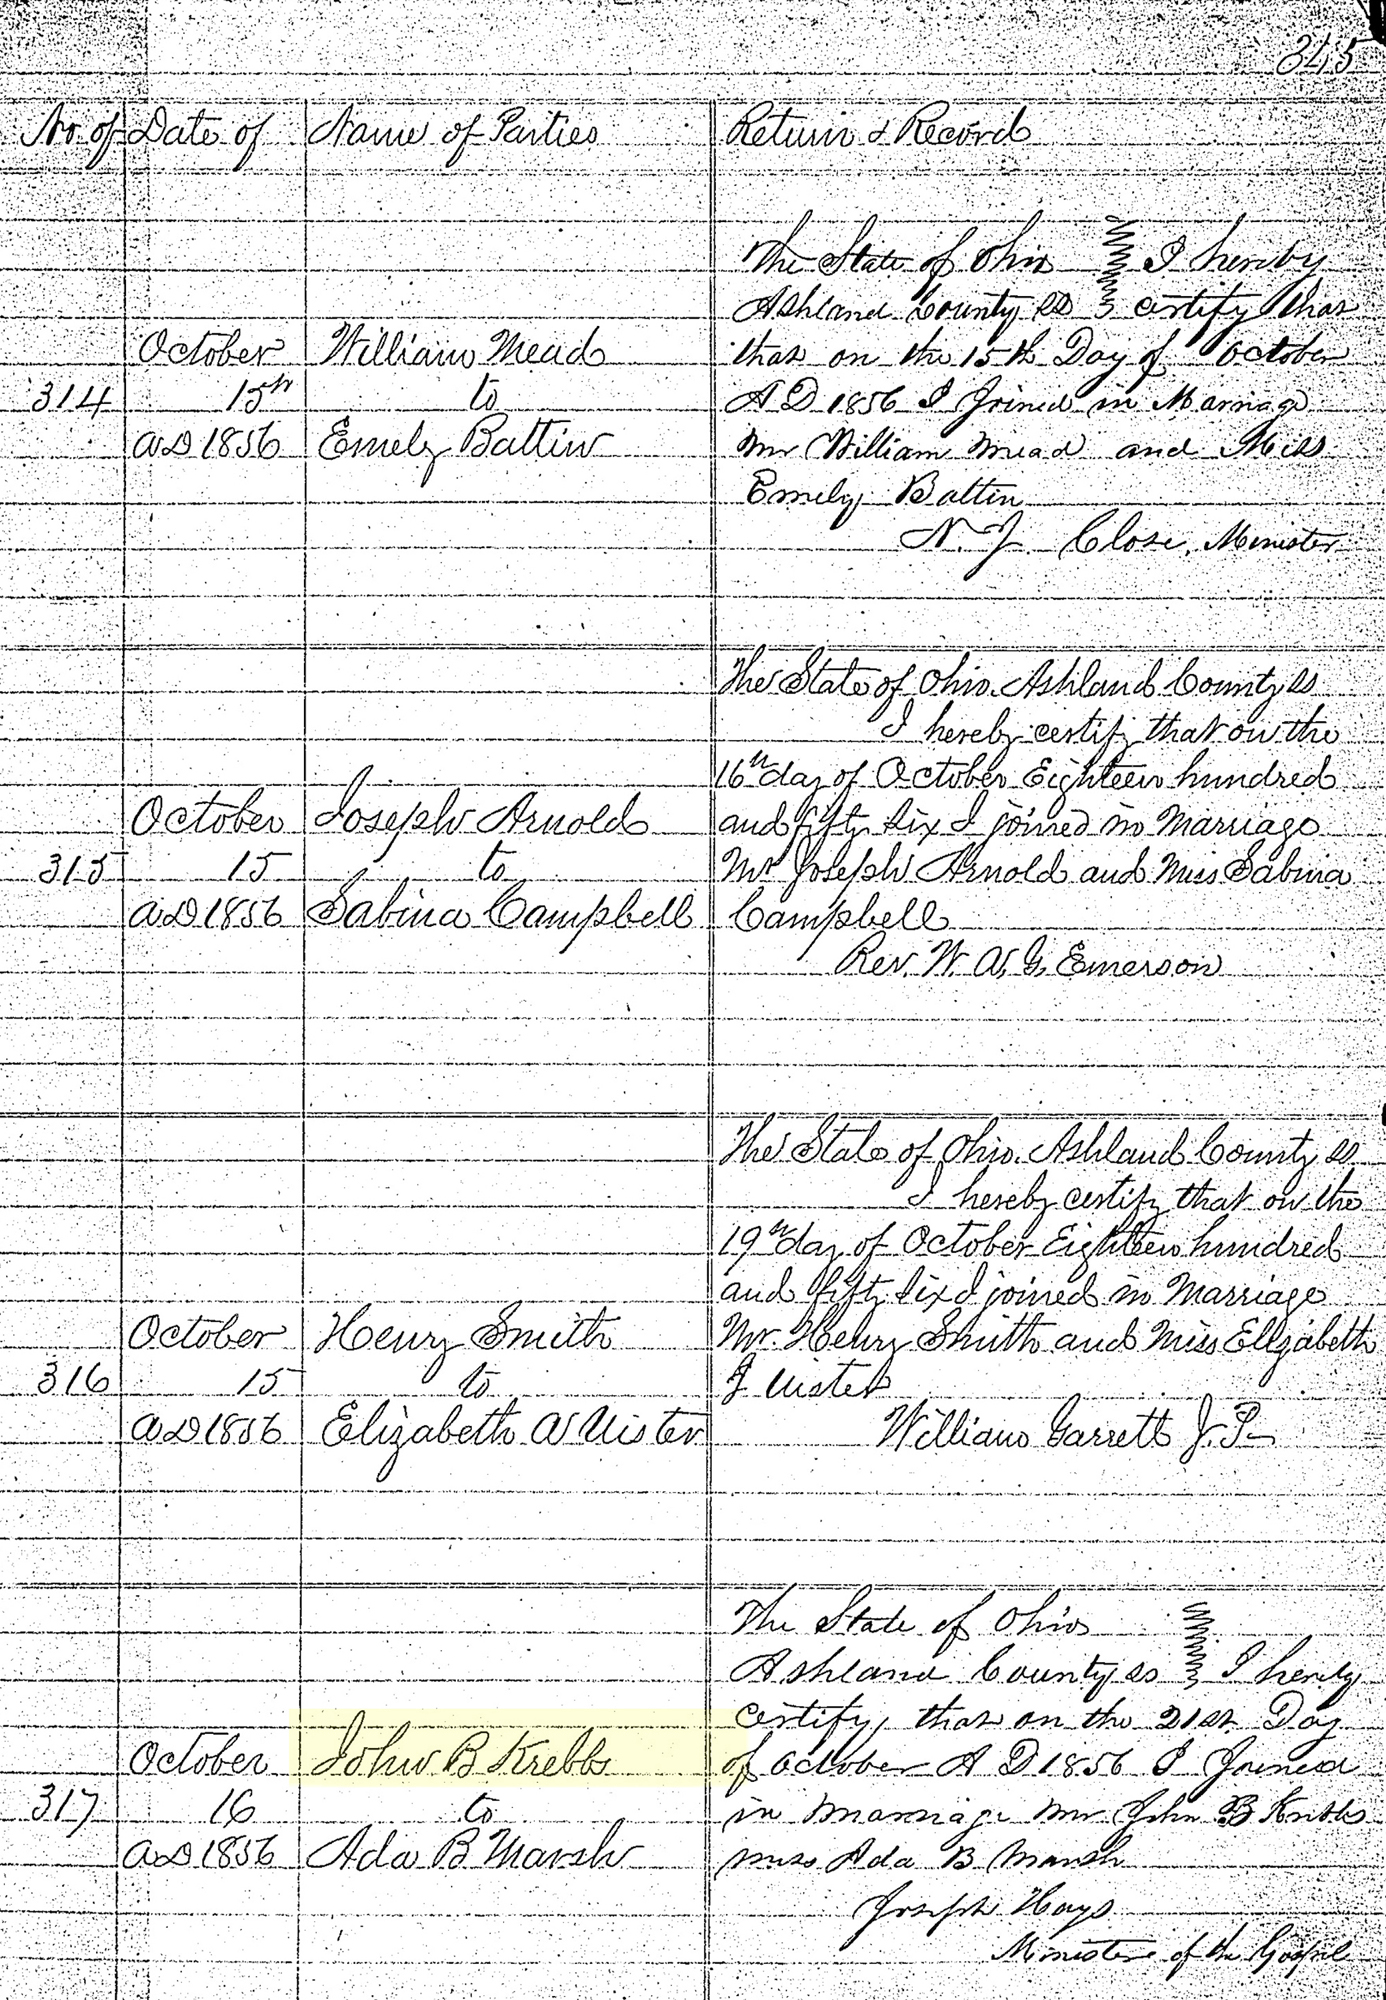 345
No. of Date of Name of Parties Return & Record
The State of Ohio I hereby
Ashland County SS certify that
October William Mead that on the 15th Day of October
314 15th to A D 1856 I Joined in Marriage
AD 1856 Emely Battin Mr William Mead and Miss
Emely Battin
N. J. Close, Minister
The State of Ohio. Ashland County ss
I hereby certify that on the
16th day of October Eighteen hundred
October Joseph Arnold and fifty six I joined in Marriage
315 15 to Mr Joseph Arnold and Miss Sabina
AD 1856 Sabina Campbell Campbell
Rev. W. A. G. Emerson
The State of Ohio. Ashland County ss
I hereby certify that on the
19th day of October Eighteen hundred
and fifty six I joined in Marriage
October Henry Smith Mr. Henry Smith and Miss Elizabeth
316 15 to
AD 1856 Elizabeth A Uister William Garrett J. P.
The State of Ohio
Ashland County ss I hereby
certify, that on the 21st Day
October John B Krebbs of October A D 1856 I Joined
317 16 to in Marriage Mr John B Krebbs
AD 1856 Ada B Marsh Miss Ada B Marsh
Joseph Hays
Minister of the Gospel